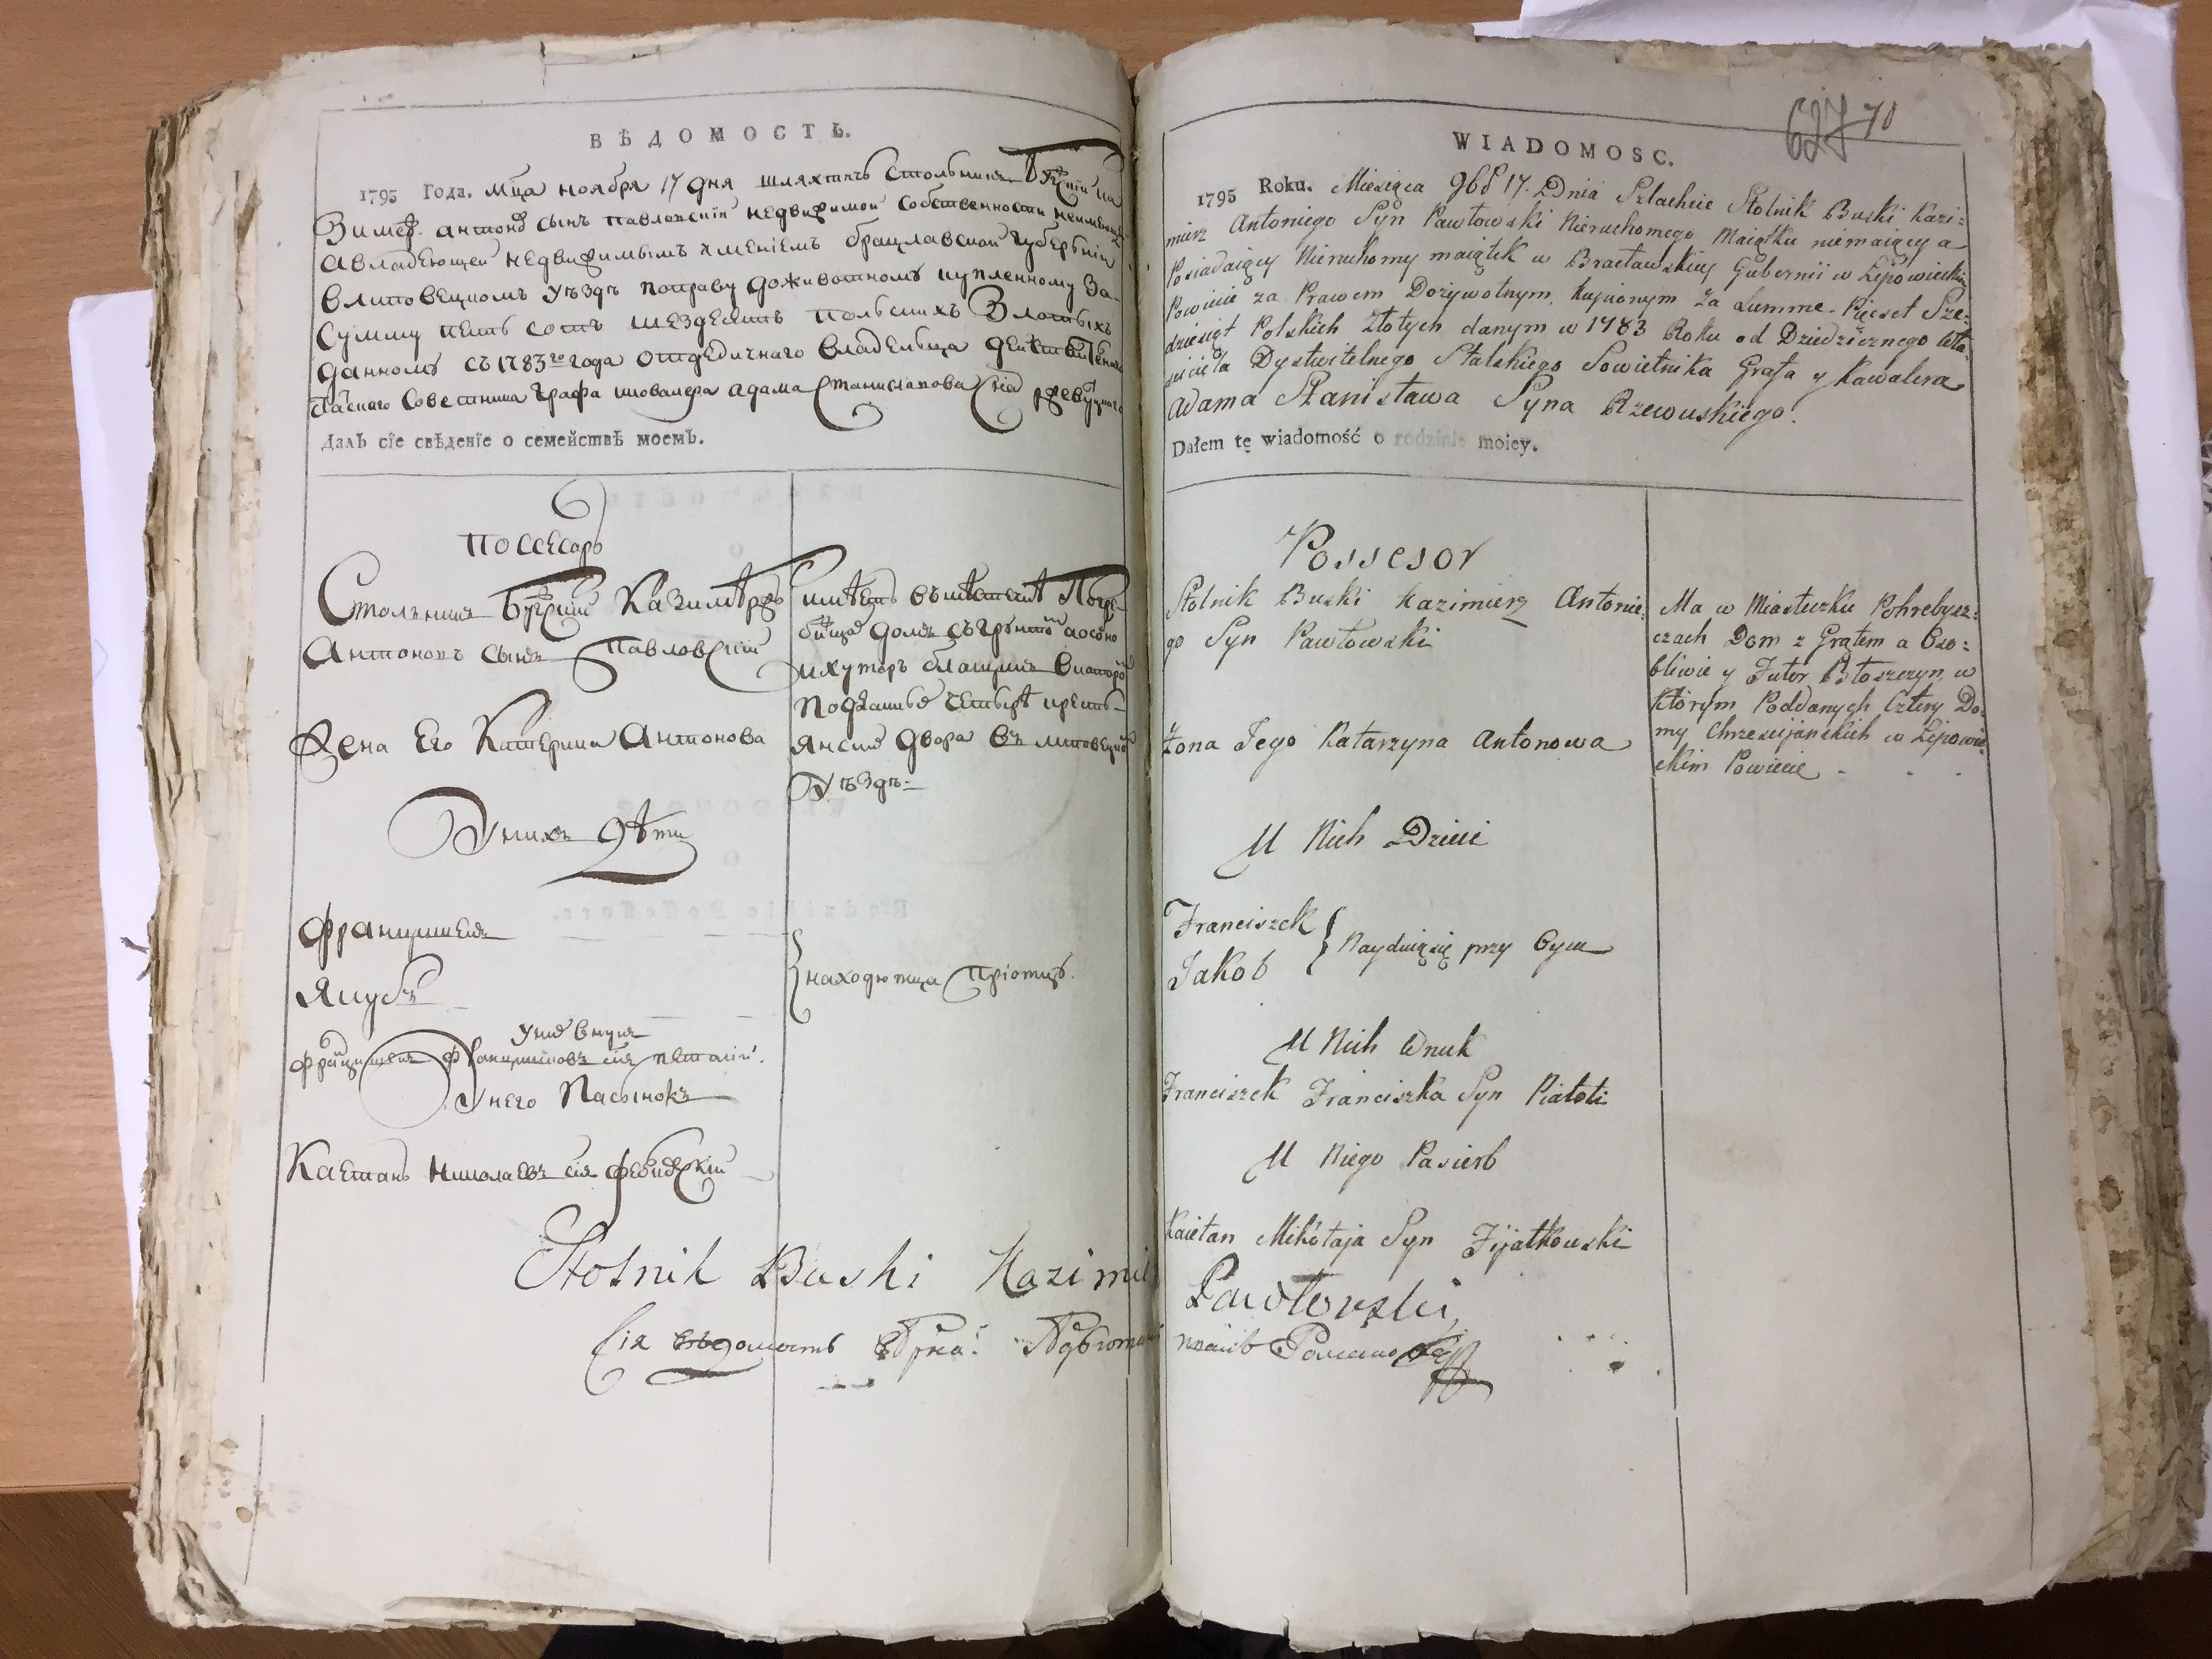 ВѢДОМОСТЬ.
1795 Года. Мца ноября 17 дня шляхтичъ Стольникъ Буский Ка
Зимер. антоновъ сынъ павловский недвижимой собственности неимеющей
авладеющей недвижимымъ имениемъ брацлавской губернии
Влиповецкомъ уъздъ поправу доживотномъ купленному За-
Сумму петь сотъ шездесятъ польскихъ Злотыхъ
данномъ съ1783го года отдедичнаго владельца действительнаго
Тайнаго Советника Графа икавалера адама Станиславова сна ржевускаго
Далъ сїе свѣденїе о семействѣ моемъ.
Поссесоръ
Стольникъ Буский Казимѣръ
Антоновъ сынъ Павловский
Жена Его Катерина Антонова
Унихъ дѣти
Францишекъ
Якубъ
Унихъ внукъ
Францишекъ Францишковъ снъ
Унего Пасынокъ
Каетанъ Николаевъ снъ
имѣетъ въмѣстечкѣ Погре-
бища домъ съгрунтомъ аособно
ихуторъ
подданыхъ четырѣ кресть-
янские двора въ липовецкомъ
Уъздъ
находютца приотцѣ.
Stolnik Buski Kazimi
Сия ведомость
WIADOMOSC.
627 70
1795 Roku. Miesiąca 9br 17. Dnia Szlachcic Stolnik Buski Kazi:
mierz Antoniego Syn Pawłowski Nieruchomego Maiątku niemaiący a
Posiadaiący Nieruchomy maiątek w Bracławskiey Gubernii w Lipowieckim
Powiecie za Prawem Dożywotnym, kupionym za Summe Pięset Sze:
dziesiąt Polskich Złotych danym w 1783 Roku od Dziedzicznego Wła:
sciciela Dystwitelnego Stalskiego Sowietnika Grafa y Kawalera
Adama Stanisława Syna Rzewuskiego.
Dałem tę wiadomość o rodzinie moiey.
Possesor
Stolnik Buski Kazimierz Antonie:
go Syn Pawłowski
Żona Jego Katarzyna Antonowa
U Nich Dzieci
Franciszek
Jakob
Nayduią się przy Oycu
U Nich Wnuk
Franciszek Franciszka Syn
U Niego Pasierb
Kaietan Mikołaja Syn Fijałkowski
Ma w Miasteczku Pohrebysz:
czach Dom z Grątem a Oso:
bliwie y Futor Błoszczyn, w
Którym Poddanych Cztery Do:
my Chrzescijańskich w Lipowie
ckim Powiecie
Pawłowski